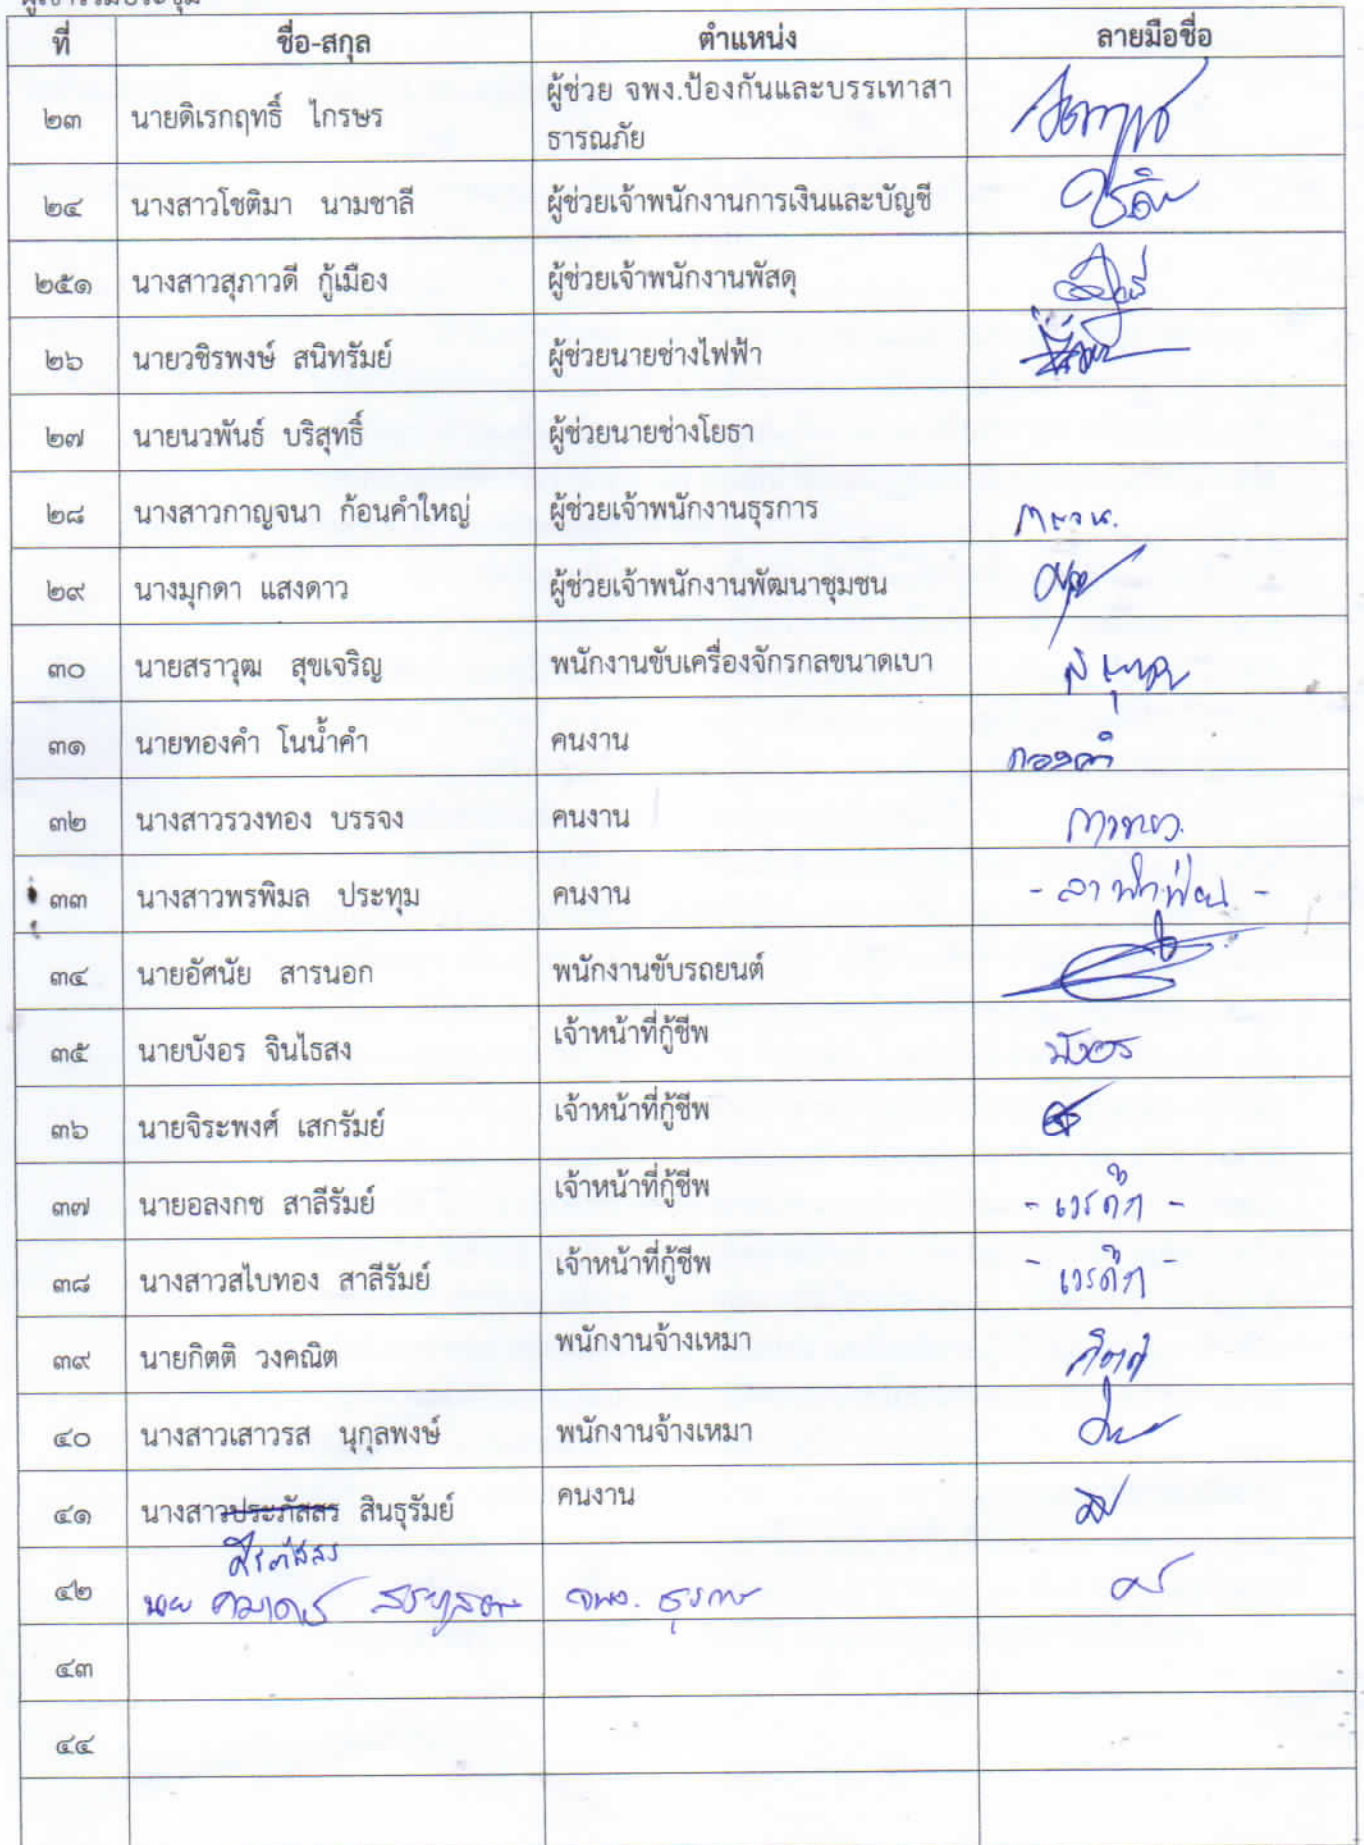 ผู้เข้าร่วมประชุม
ที่ ชื่อ-สกุล ตำแหน่ง ลายมือชื่อ
๒๓ นายดิเรกฤทธิ์ ไกรษร ผู้ช่วย จพง.ป้องกันและบรรเทาสา
ธารณภัย
๒๔ นางสาวโชติมา นามชาลี ผู้ช่วยเจ้าพนักงานการเงินและบัญชี
๒๕๑ นางสาวสุภาวดี กู้เมือง ผู้ช่วยเจ้าพนักงานพัสดุ
๒๖ นายวชิรพงษ์ สนิทรัมย์ ผู้ช่วยนายช่างไฟฟ้า
๒๗ นายนวพันธ์ บริสุทธิ์ ผู้ช่วยนายช่างโยธา
๒๘ นางสาวกาญจนา ก้อนคำใหญ่ ผู้ช่วยเจ้าพนักงานธุรการ
๒๙ นางมุกดา แสงดาว ผู้ช่วยเจ้าพนักงานพัฒนาชุมชน
๓๐ นายสราวุฒ สุขเจริญ พนักงานขับเครื่องจักรกลขนาดเบา
๓๑ นายทองคำ โนน้ำคำ คนงาน ทองคำ
๓๒ นางสาวรวงทอง บรรจง คนงาน
๓๓ นางสาวพรพิมล ประทุม คนงาน - ลาพักผ่อน -
๓๔ นายอัศนัย สารนอก พนักงานขับรถยนต์
๓๕ นายบังอร จินไธสง เจ้าหน้าที่กู้ชีพ บังอร
๓๖ นายจิระพงศ์ เสกรัมย์ เจ้าหน้าที่กู้ชีพ
๓๗ นายอลงกช สาลีรัมย์ เจ้าหน้าที่กู้ชีพ - เวรดึก -
๓๘ นางสาวสไบทอง สาลีรัมย์ เจ้าหน้าที่กู้ชีพ - เวรดึก -
๓๙ นายกิตติ วงคณิต พนักงานจ้างเหมา กิตติ
๔๐ นางสาวเสาวรส นุกูลพงษ์ พนักงานจ้างเหมา
๔๑ นางสาวประภัสสร สินธุรัมย์ คนงาน
ศิรภัสสร
๔๒ นาย จพง. ธุรการ
๔๓
๔๔